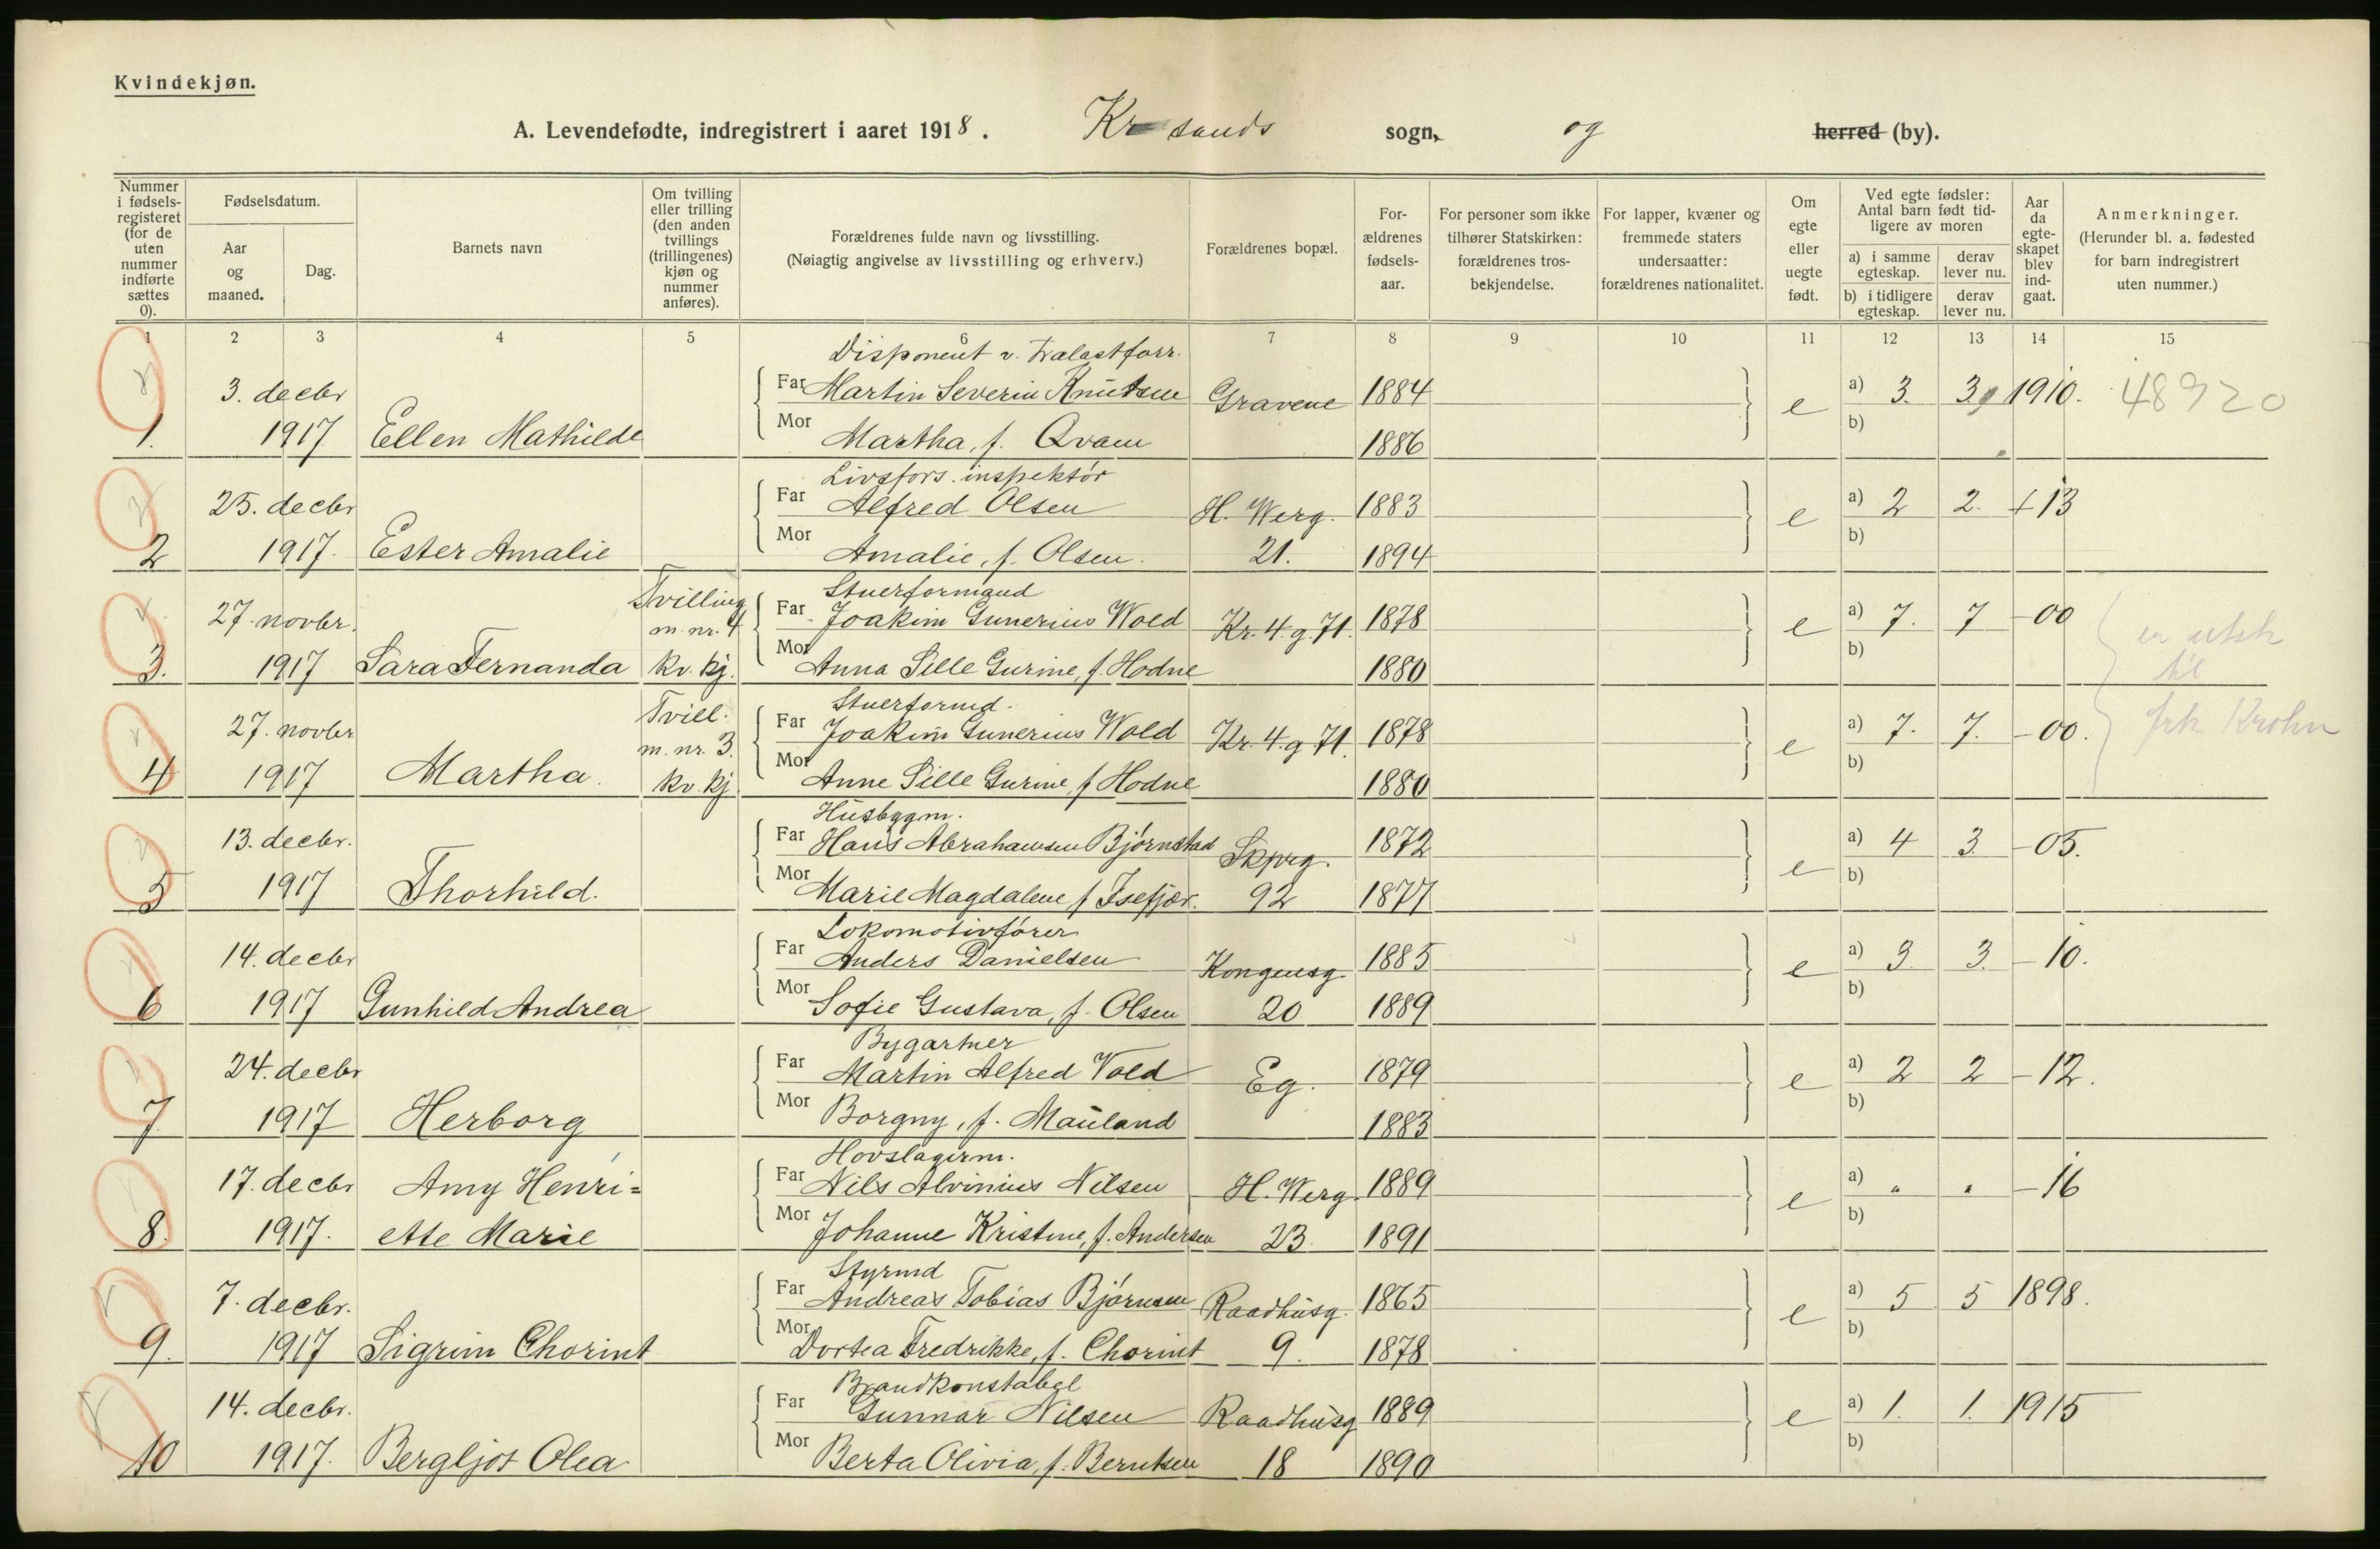 Kvindekjøn.
A. Levendefødte, indregistrert i aaret 1918. Kr sands sogn, og herred (by).
Nummer i fødselsregisteret (for de uten nummer indførte sættes 0).
Fødselsdatum.
Aar og maaned.
Dag.
Barnets navn
Om tvilling eller trilling (den anden tvillings (trillingenes) kjøn og nummer anføres).
Forældrenes fulde navn og livsstilling. (Nøiagtig angivelse av livsstilling og erhverv.)
Forældrenes bopæl.
Forældrenes fødselsaar.
For personer som ikke tilhører Statskirken: forældrenes trosbekjendelse.
For lapper, kvæner og fremmede staters undersaatter: forældrenes nationalitet.
Om egte eller uegte født.
Ved egte fødsler: Antal barn født tidligere av moren
a) i samme egteskap.
derav lever nu.
b) i tidligere egteskap.
derav lever nu.
Aar da egteskapet blev indgaat.
Anmerkninger. (Herunder bl. a. fødested for barn indregistrert uten nummer.)
1 2 3 4 5 6 7 8 9 10 11 12 13 14 15
Disponent v.
3. decbr Far Martin Severin Knutsen Gravene 1884 e a) 3. 3 1910. 48920
1. 1917 Ellen Mathilde Mor Martha, f. Qvam 1886 b)
Livsfors. inspektør
25. decbr Far Alfred Olsen H. Werg. 1883 e a) 2 2. + 13
2 1917. Ester Amalie Mor Amalie, f. Olsen. 21. 1894 b)
Tvilling Stuerformand
27. novbr. m. nr. 4 Far Joakim Gunerius Wold Kr. 4. g. 71. 1878 e a) 7. 7 -00 er utsk
3. 1917 Sara Fernanda kv. kj. Mor Anna Sille Gurine, f. Hodne 1880 b) til
Tvill. Stuerformd.
27. novbr m. nr. 3. Far Joakim Gunerius Wold Kr. 4. g. 71. 1878 e a) 7. 7. -00. frk Krohn
4 1917 Martha. kv. kj Mor Anne Sille Gurine, f Hodne 1880 b)
Husbygm.
13. decbr. Far Hans Abrahamsen Bjørnstad Skprg. 1872 e a) 4 3. -05.
5 1917 Thorhild. Mor Marie Magdalene f Isefjær. 92 1877 b)
Lokomotivfører
14. decbr Far Anders Danielsen Kongensg. 1885 e a) 3. 3. -10.
6 1917 Gunhild Andrea Mor Sofie Gustava, f. Olsen 20 1889 b)
Bygartner
24. decbr Far Martin Alfred Vold Eg. 1879 e a) 2 2 -12.
7 1917 Herborg Mor Borgny, f. Mauland 1883 b)
Hovslagerm.
17. decbr Amy Henri= Far Nils Alvinius Nilsen H. Werg. 1889 e a) " " -16
8. 1917. ette Marie Mor Johanne Kristine, f. Andersen 23. 1891 b)
Styrmd
7. decbr. Far Andreas Tobias Bjørnsen Raadhusg. 1865 e a) 5 5 1898.
9. 1917 Sigrun Chorint Mor Dortea Fredrikke, f. Chorint 9. 1878 b)
Brandkonstabel
14. decbr. Far Gunnar Nilsen Raadhusg 1889 e a) 1. 1. 1915
10 1917. Bergljot Olea Mor Berta Olivia, f. Berntsen 18 1890 b)